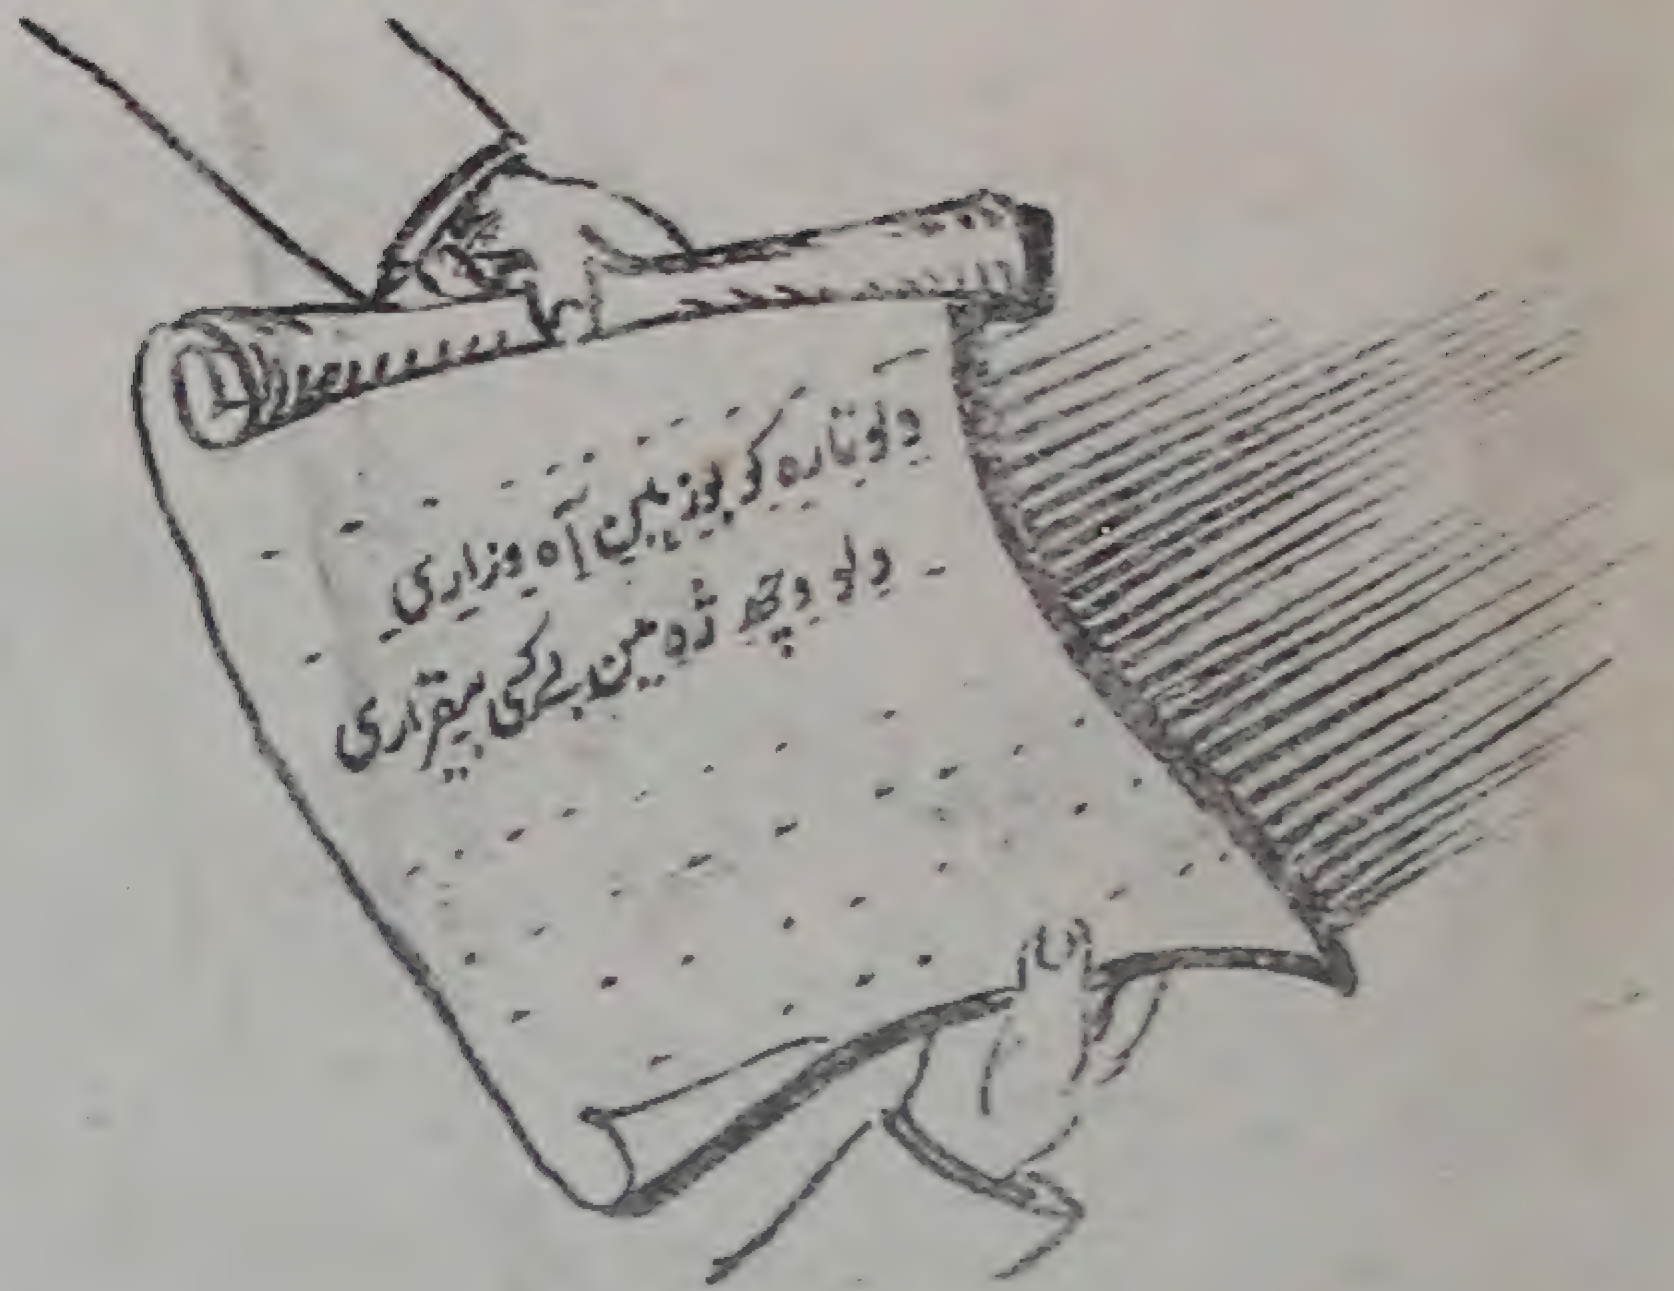 دلو یارہ کو بوزمین آہ وزاری
دلو وچھ ژہ مین بے کسی بیقراری